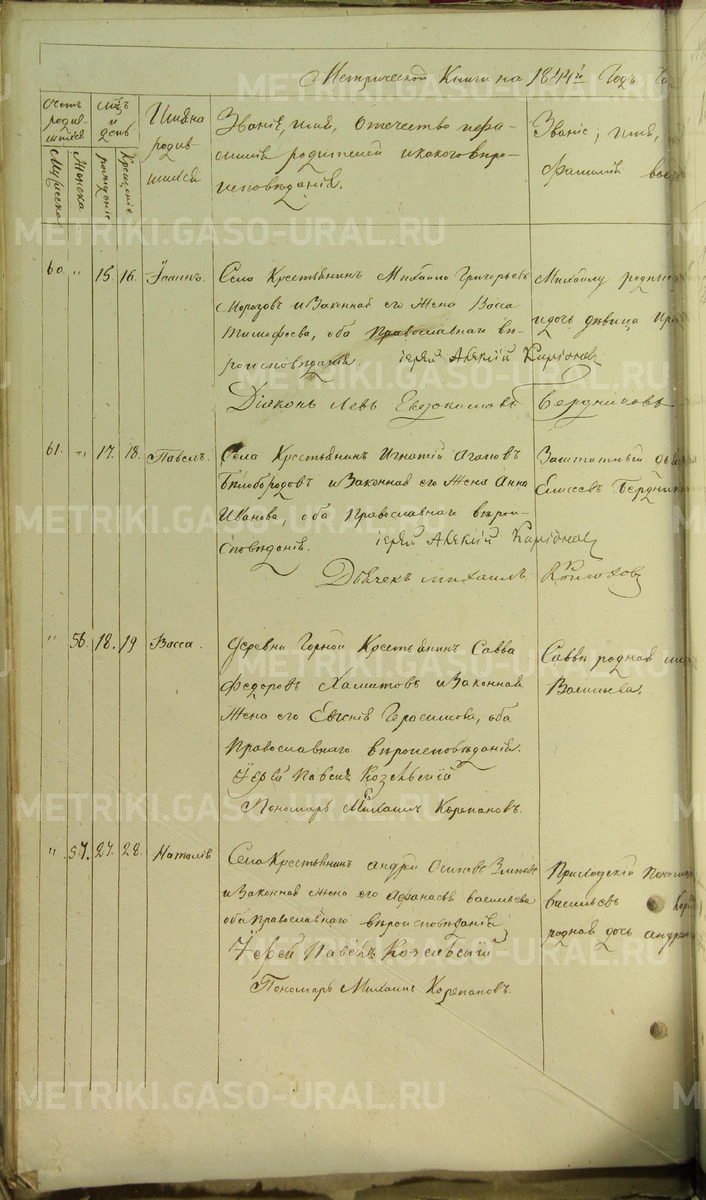 Метрической Книги на 1844й Годъ
Счетъ родившихся
Мужеска
Женска
Мѣсяцъ и день
рожденіе
крещеніе
Имяна родившихся
Званіе, имя, отечество и фамилія родителей и какого вѣроисповѣданія.
Званіе, имя,
фамилія
60. " 15. 16. Іоаннъ. Села Крестьянинъ Михайло Григорьевъ
Морозовъ и Законная его Жена Васса
Тимофеева, оба Православнаго вѣ-
роисповѣданія.
Михаилу родные
и дочь дѣвица
Діаконъ Левъ Евдокимовъ Бердниковъ
61. " 17. 18. Павелъ. Села Крестьянинъ Игнатій Агаповъ
Бѣлобородовъ и Законная его Жена Анна
Иванова, оба Православнаго вѣрои-
сповѣданія.
Заштатный
Елисеевъ
Дьячекъ Михаилъ Конюховъ
" 56. 18. 19 Васса. Деревни Горной Крестьянинъ Савва
Федоровъ Хамитовъ и Законная
Жена его Евгенія Герасимова, оба
Православнаго вѣроисповѣданія.
Іерей Павелъ Козельскій
Пономарь Михаилъ Корепановъ.
Саввы родная
" 57. 27. 28. Наталія Села Крестьянинъ Андрей Осиповъ
и Законная Жена его Афанасья Васильева
оба Православнаго вѣроисповѣданія
Іерей Павелъ Козельскій
Пономарь Михаилъ Корепановъ.
Приходскій Пономарь
Васильевъ
родная дочь Андрея
METRIKI.GASO-URAL.RU